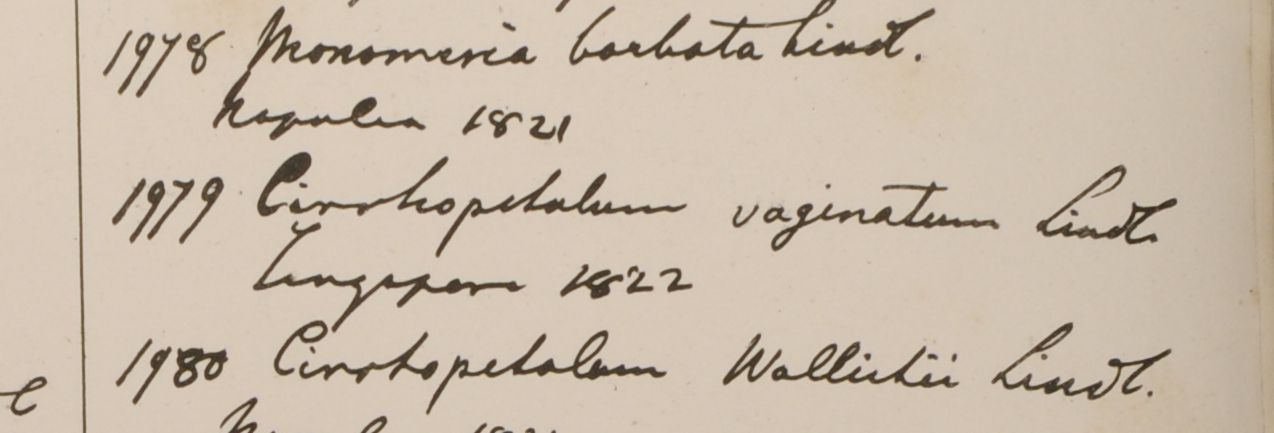 1978 Monomeria barbata Lindl.
Napalia 1821
1979 Cirrhopetalum vaginatum Lindl.
Singapore 1822
1980 Cirrhopetalum Wallichii Lindl.